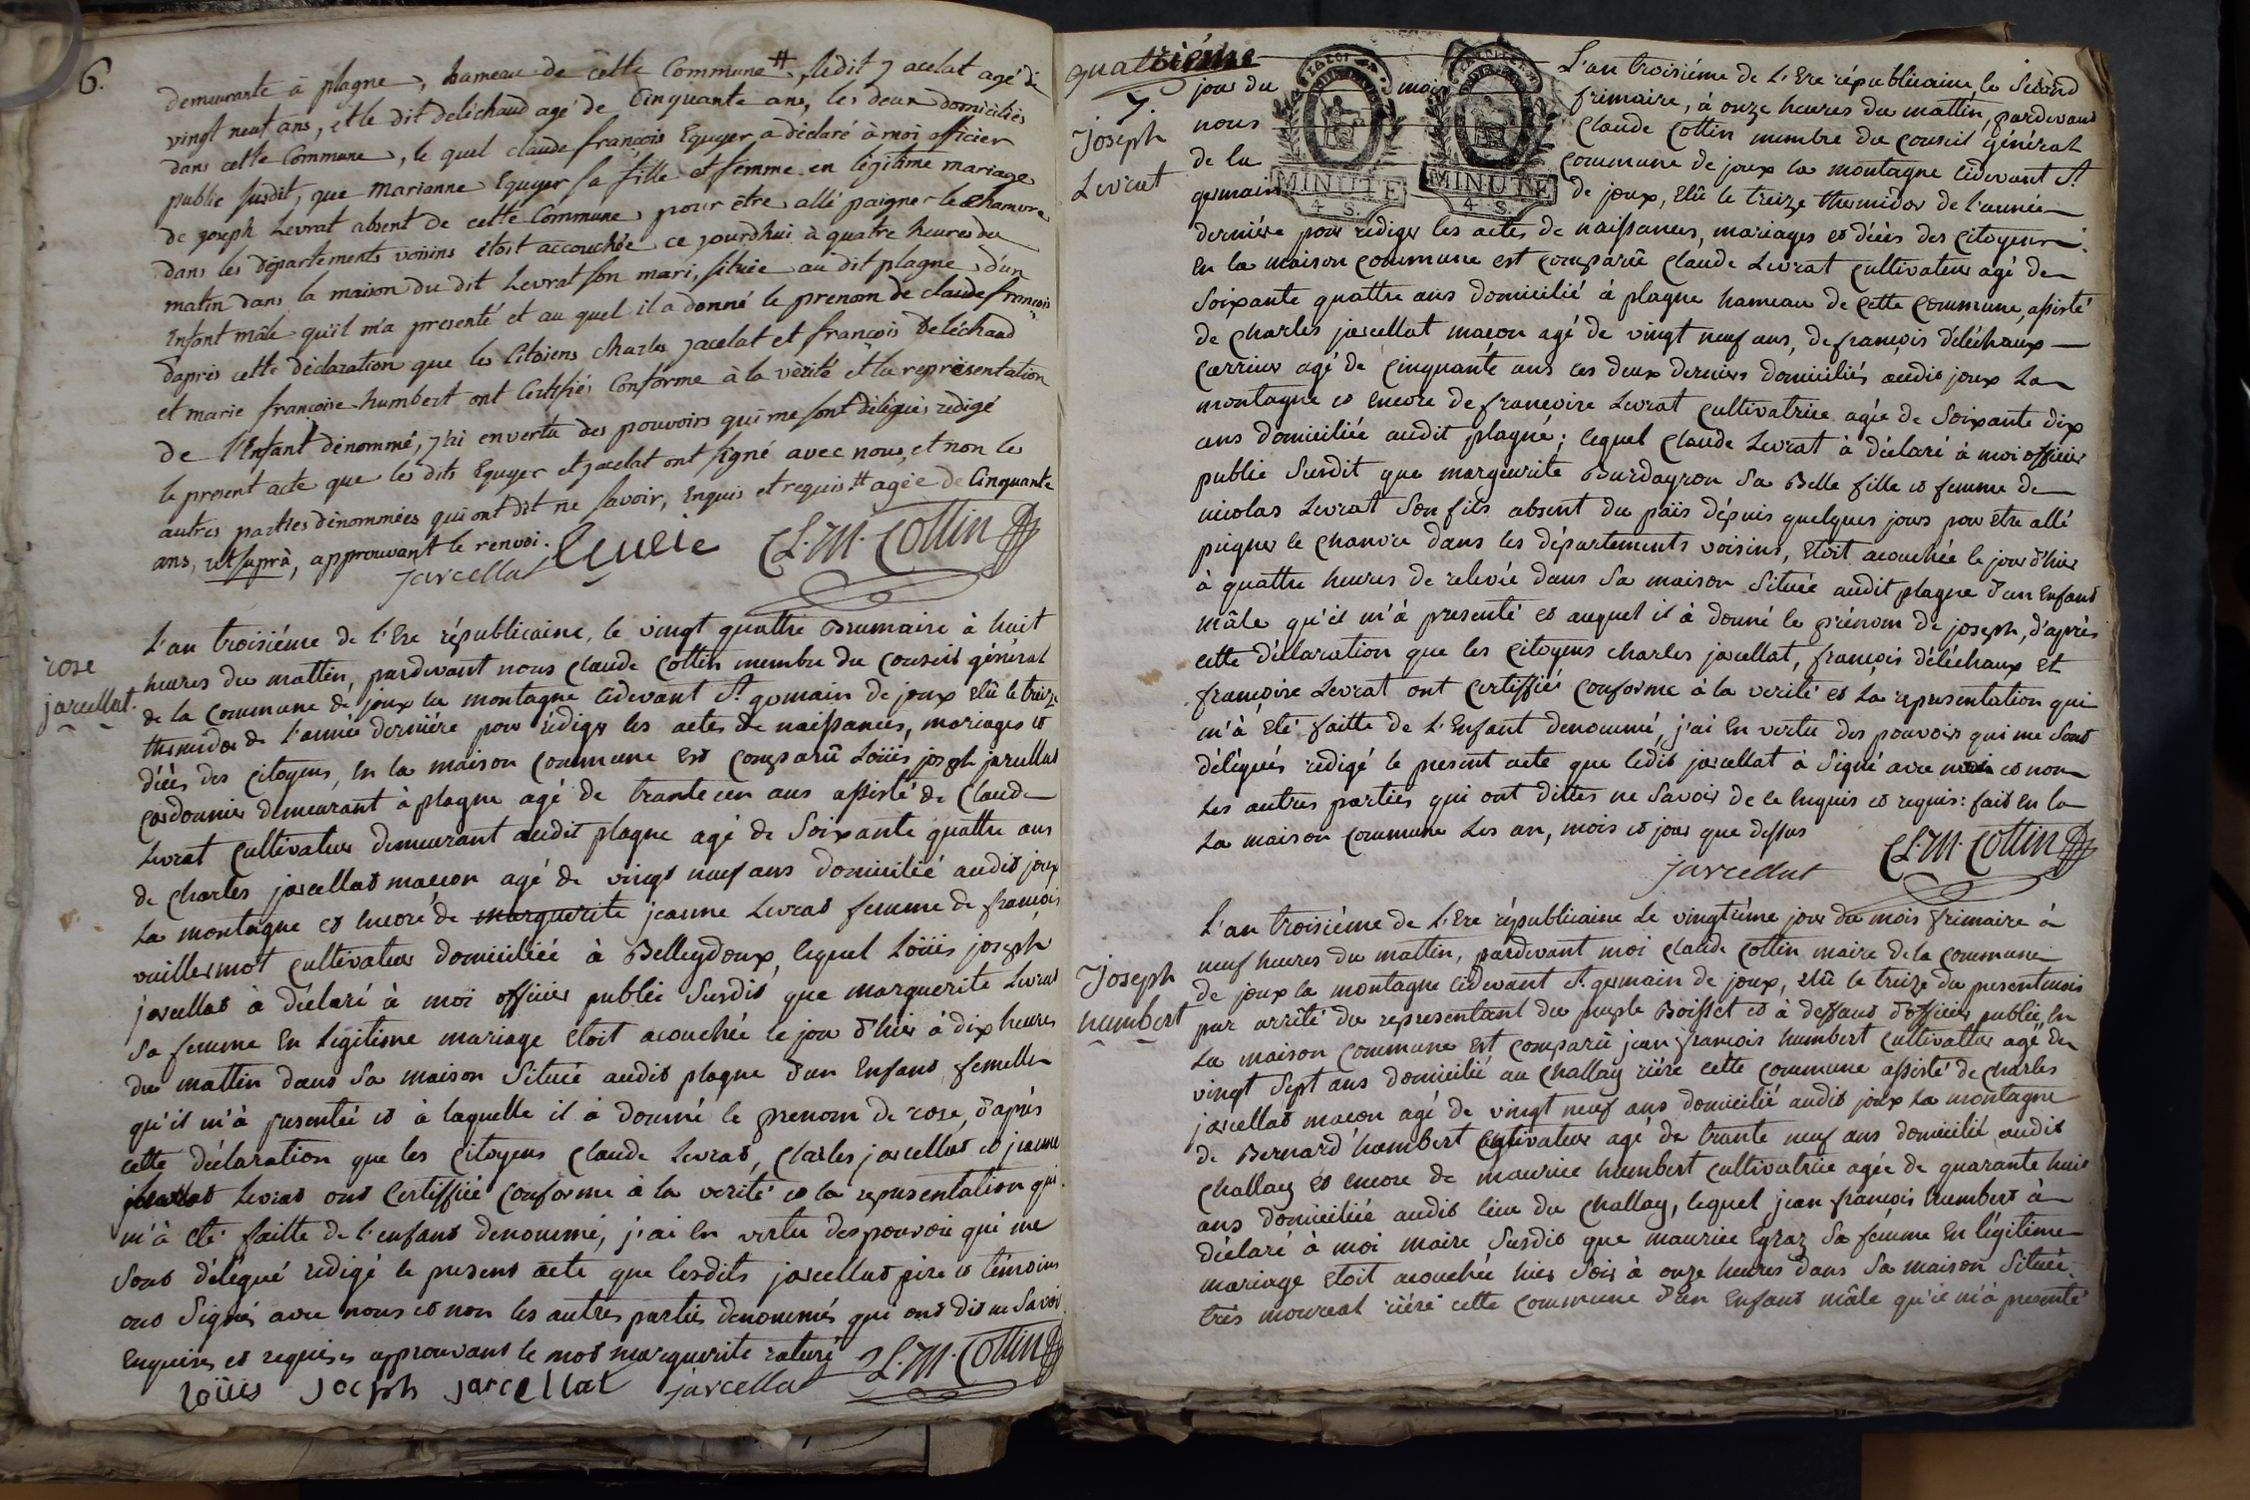 6.
demeurante à plagne, hameau de cette Commune #, ledit jacelat agé de
vingt neuf ans, et le dit deléchaud agé de Cinquante ans, les deux domiciliés
dans cette Commune, le quel claude françois Eguyer a déclaré à moi officier
public susdit, que marianne Eguyer sa fille et femme en légitime mariage
de joseph Levrat absent de cette Commune, pour être allé paigner le chamvre
dans les départements voisins étoit accouchée ce jourdhui à quatre heures du
matin dans la maison du dit Levrat son mari, située au dit plagne d'un
Enfant mâle qu'il m'a presenté et au quel il a donné le prenom de claude françois
dapris cette déclaration que les Citoiens charles jacelat et françois Deléchaud
et marie françoise humbert ont Certifiés Conforme à la vérité et la représentation
de l'Enfant dénommé, j'ai en vertu des pouvoirs qui me sont délégués rédigé
le present acte que les dits Eguyer et jacelat ont signé avec nous, et non les
autres parties dénommées qui ont dit ne savoir, Enquis et requis # agée de Cinquante
ans, ut suprà, approuvant le renvoi.
jarcellat
Cl. M. Collin
rose
jarcellat.
L'an troisiéme de l'Ere républicaine, le vingt quattre Brumaire à huit
heures du mattin, pardevant nous claude Collin membre du Conseil général
de la Commune de joux la montagne cidevant St. germain de joux elû le treize
thermidor de l'année derniére pour rédiger les actes de naissances, mariages et
décès des Citoyens, En la maison Commune est comparû Loüis joseph jarcellat
Cordonnier demeurant à plagne agé de trante un ans assisté de Claude
Levrat Cultivateur demeurant audit plagne agé de Soixante quattre ans
de Charles jarcellat macon agé de vingt neuf ans domicilié audit joux
la montagne et Encore de marguerite jeanne Levrat femme de françois
vuillermot Cultivateur domiciliéé à Belleydoux, lequel Loüis joseph
jarcellat à déclaré à moi officier public Susdit que marguerite Levrat
Sa femme En Légitime mariage étoit acouchée le jour d'hier à dix heures
du mattin dans Sa maison Située audit plagne d'un Enfant femelle
qu'il m'à presentée et à laquelle il à donné le prenom de rose, d'après
cette déclaration que les Citoyens Claude Levrat, Charles jarcellat et jeanne
Levrat ont Certiffiée Conforme à la verité et la representation qui
m'à été faitte de l'enfant denommé, j'ai En vertu des pouvoir qui me
Sont délégué redigé le present acte que lesdits jarcellat pire et témoins
ont Signés avec nous et non les autres parties denommés qui ont dit ne Savoir
Enquises et requises approuvant le mot marguerite raturé
loüis joseph jarcellat jarcellat Cl. M. Collin
quattriéme
jour du mois
L'an troisiéme de L'Ere républicaine, le Second
7.
Joseph
Levrat
nous
frimaire, à onze heures du mattin, pardevant
de la
Claude Collin membre du Conseil général
germain
Commune de joux la montagne cidevant St.
de joux, elû le treize thermidor de l'année
MINUTE
4. S.
MINUTE
4. S.
derniére pour rédiger les actes de naissances, mariages et décès des Citoyens.
En la maison Commune est Comparû Claude Levrat Cultivateur agé de
Soixante quattre ans domicilié à plagne hameau de Cette Commune, assisté
de Charles jarcellat macon agé de vingt neuf ans, de françois déléchaux
Carrier agé de Cinquante ans ces deux derniers domiciliés audit joux la
montagne et Encore de francoise Levrat Cultivatrice agée de Soixante dix
ans domiciliée audit plagne; lequel Claude Levrat à déclaré à moi officier
public Susdit que marguerite Burdayron Sa Belle fille et femme de
nicolas Levrat Son fils absent du païs dépuis quelques jours pour être allé
peigner le chanvre dans les départements voisins, étoit acouchée le jour d'hier
à quattre heures de relevée dans Sa maison Située audit plagne d'un Enfant
mâle qu'il m'à presenté et auquel il à donné le prénom de joseph, d'après
cette déclaration que les Citoyens Charles jarcellat, françois déléchaux et
françoise Levrat ont Certiffiés Conforme à la verité et la representation qui
m'à été faitte de L'Enfant denommé, j'ai En vertu des pouvoirs qui me Sont
délégués rédigé le present acte que ledit jarcellat à Signé avec moi et non
Les autres parties qui ont dittes ne Savoir de ce Enquis et requis: fait En la
La maison Commune Les an, mois et jour que dessus
jarcellat Cl. M. Collin
Joseph
humbert
L'an troisiéme de L'Ere républicaine Le vingtiéme jour du mois frimaire à
neuf heures du mattin, pardevant moi Claude Collin maire de la Commune
de joux la montagne cidevant St. germain de joux, elû le treize du present mois
par arrêté du representant du peuple Boisset et à deffaut d'officier public, En
La maison Commune est Comparû jean françois humbert Cultivatteur agé de
vingt Sept ans domicilié au Challay riére cette Commune assisté de Charles
jarcellat macon agé de vingt neuf ans domicilié audit joux La montagne
de Bernard humbert Cultivateur agé de trante neuf ans domicilié audit
Challay et encore de maurice humbert Cultivatrice agée de quarante huit
ans domiciliée audit lieu du Challay, lequel jean françois humbert à
déclaré à moi maire Susdit que maurice Egraz Sa femme En légitime
mariage étoit acouchée hier Soir à onze heures dans Sa maison Située
très moureat riére cette Commune d'un Enfant mâle qu'il m'à presenté